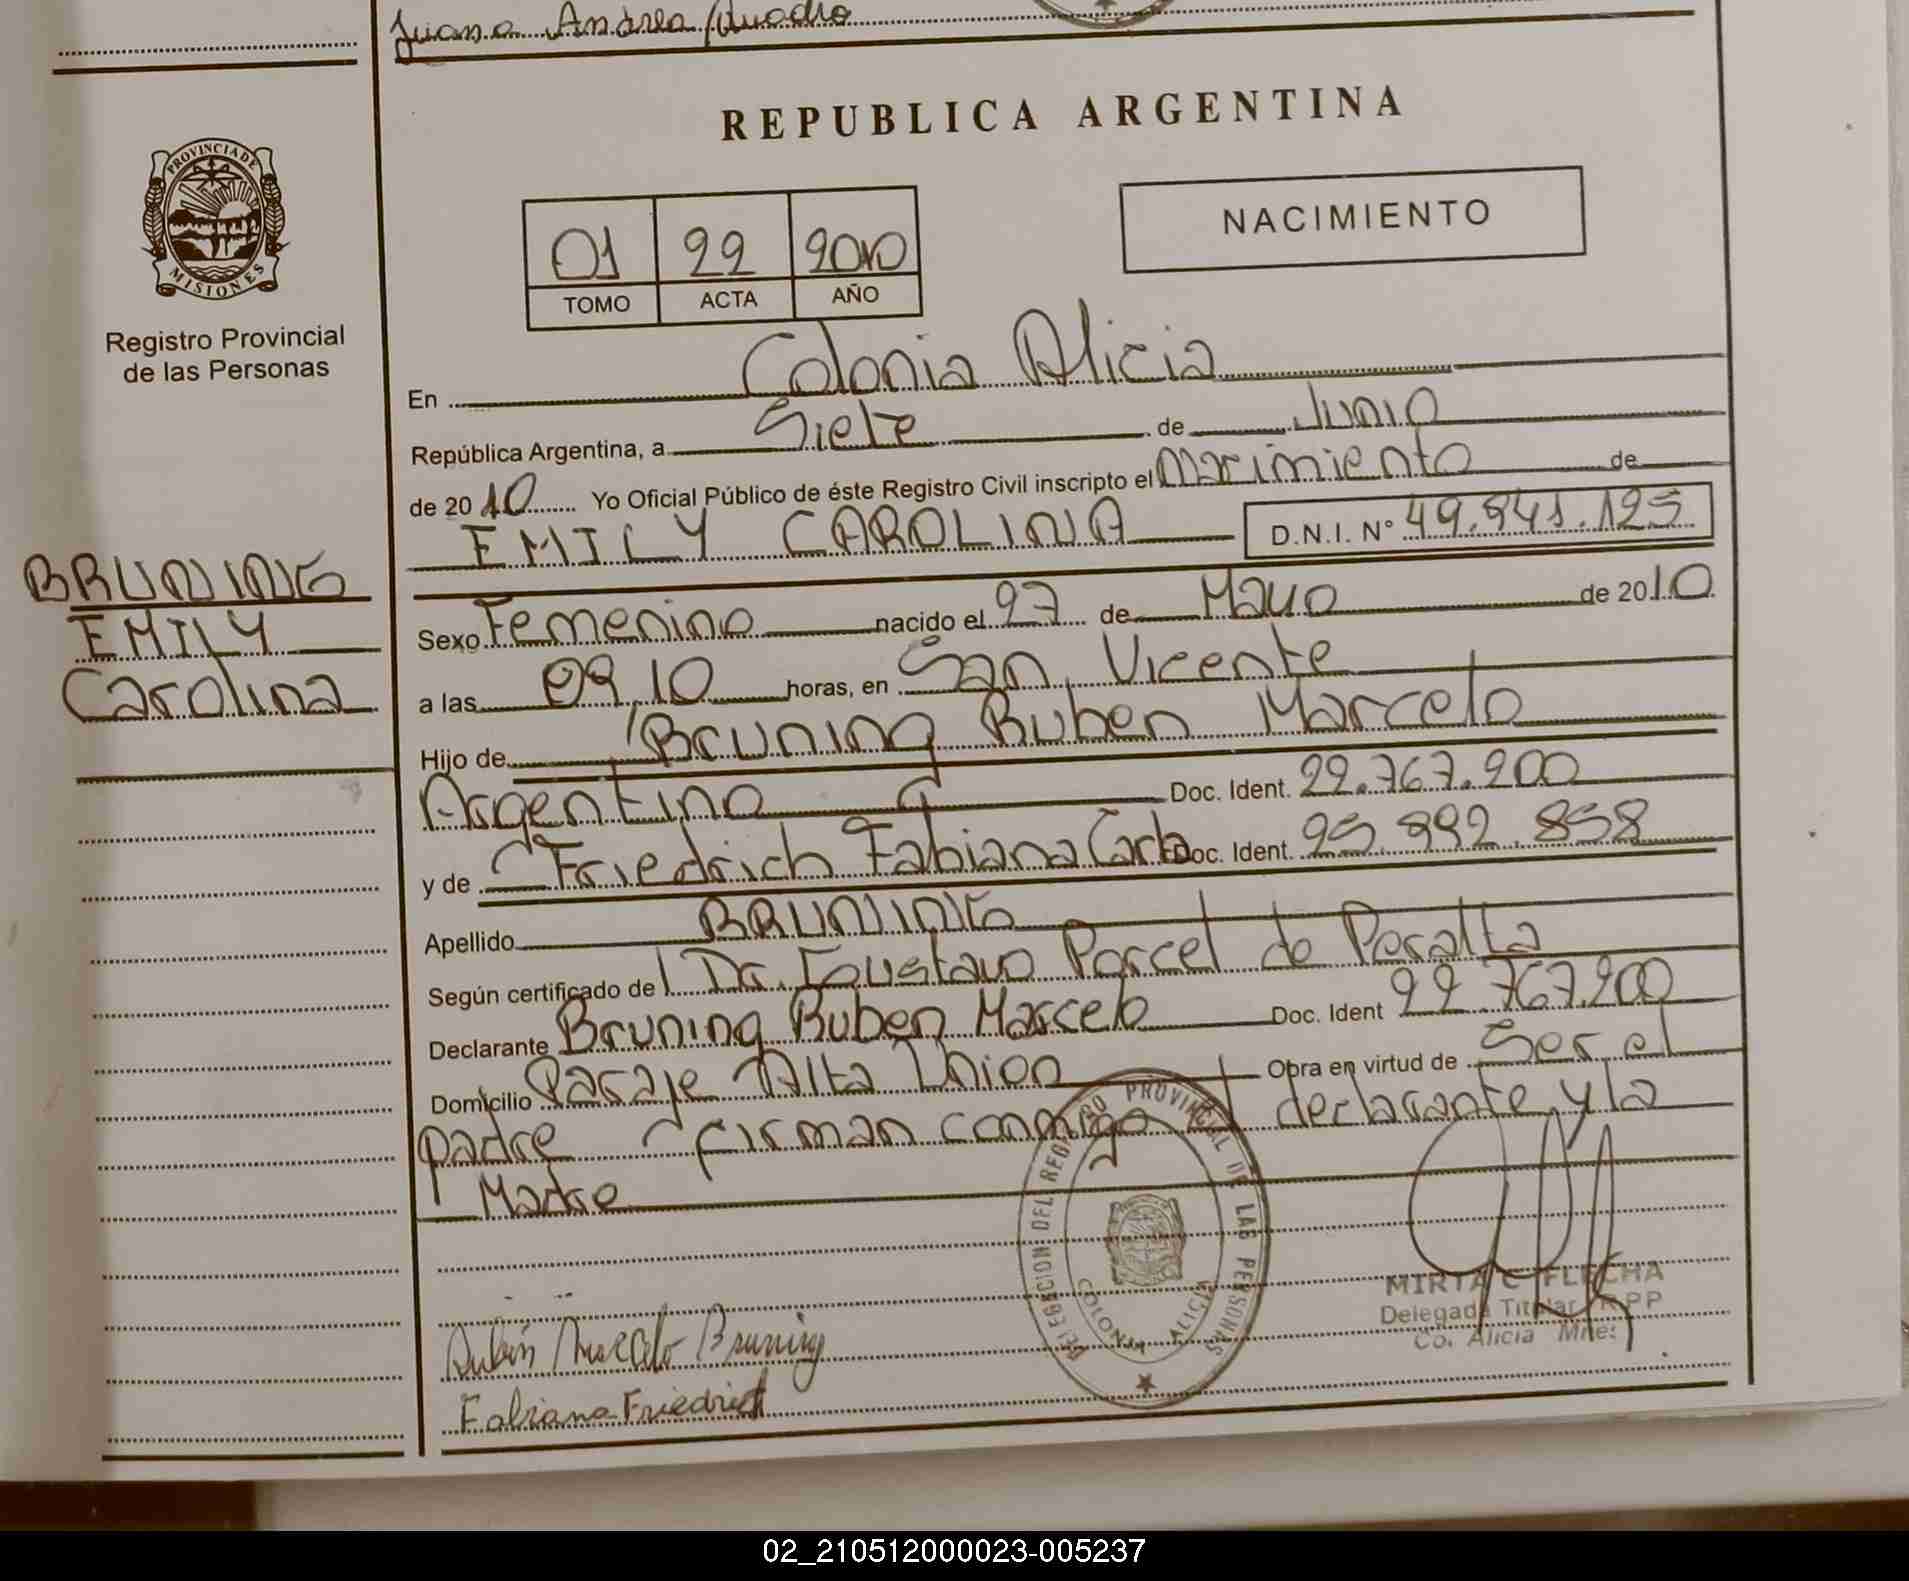 Juana Andrea Quadro
REPUBLICA ARGENTINA
PROVINCIA DE
MISIONES
Registro Provincial
de las Personas
01 22 2010
TOMO ACTA AÑO
NACIMIENTO
En Colonia Alicia
República Argentina, a Siete de Junio
de 2010 Yo Oficial Público de éste Registro Civil inscripto el Nacimiento de
EMILY CAROLINA D.N.I. Nº 49.841.125
BRUNING
EMILY
Carolina
Sexo Femenino nacido el 27 de Mayo de 2010
a las 09,10 horas, en San Vicente
Hijo de Bruning Ruben Marcelo
Argentino Doc. Ident. 22.767.200
y de Friedrich Fabiana Carla Doc. Ident. 25.892.858
Apellido BRUNING
Según certificado de Dr. Gustavo Porcel de Peralta
Declarante Bruning Ruben Marcelo Doc. Ident 22.767.200
Domicilio Paraje Alta Union Obra en virtud de Ser el
padre firman conmigo declarante y la
Madre
DELEGACION DEL REGISTRO PROVINCIAL DE LAS PERSONAS
COLONIA ALICIA
MIRTA C. FLECHA
Delegada Titular R.P.P
Co. Alicia Mnes
Rubén Marcelo Bruning
Fabiana Friedrich
02_210512000023-005237